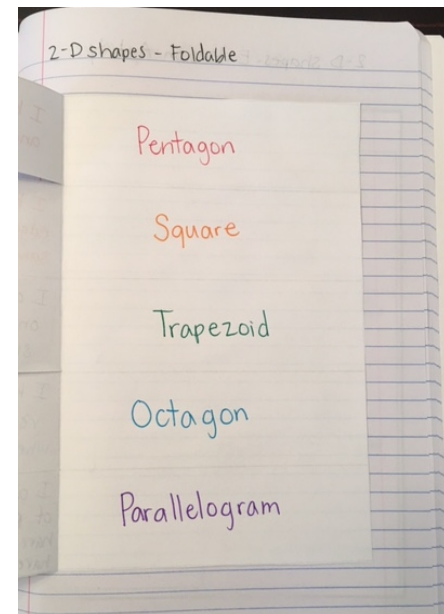 2-D shapes - Foldable
Pentagon
Square
Trapezoid
Octagon
Parallelogram